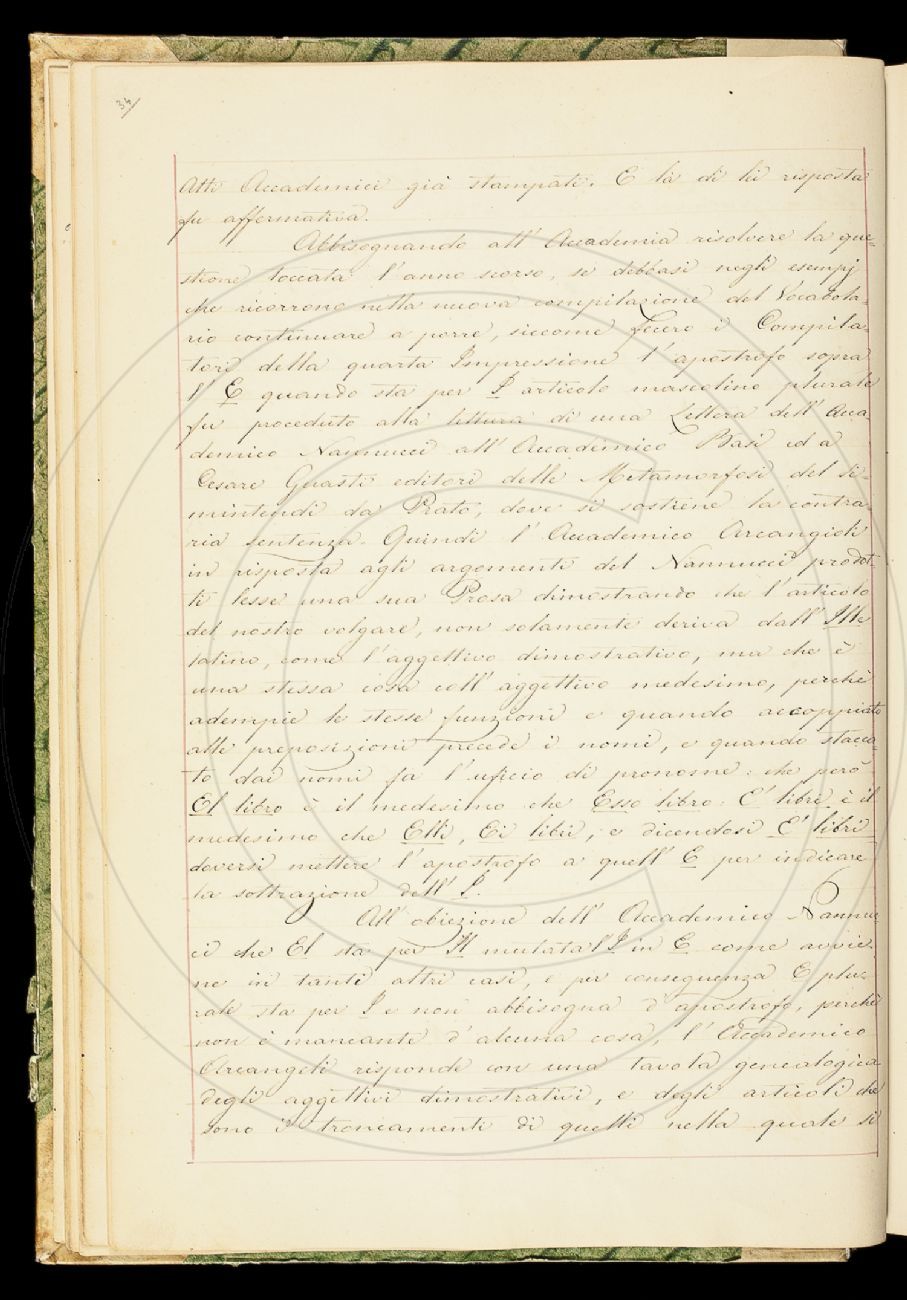 34
Atti Accademici già stampati. E la di lui risposta
fu affermativa.
Abbisognando all' Accademia risolvere la que=
stione toccata l'anno scorso, se debbasi negli esempj
che ricorrono nella nuova compilazione del Vocabola=
rio continuare a porre, siccome fecero i Compila=
tori della quarta Impressione l'apostrofo sopra
l' E quando sta per I articolo mascolino plurale
fu proceduto alla lettura di una Lettera dell' Acca
demico Nannucci all' Accademico Basi ed a
Cesare Guasti editori delle Metamorfosi del Si=
mintendi da Prato, dove si sostiene la contra=
ria sentenza. Quindi l' Accademico Arcangioli
in risposta agli argomenti del Nannucci prodot=
ti lesse una sua Prosa dimostrando che l'articolo
del nostro volgare, non solamente deriva dall' Ille
latino, come l'aggettivo dimostrativo, ma che è
una stessa cosa coll' aggettivo medesimo, perchè
adempie le stesse funzioni e quando accoppiato
alle preposizioni precede i nomi, e quando stacca=
to dai nomi fa l'uficio di pronome: che però
El libro è il medesimo che Esso libro: E' libri è il
medesimo che Elli, Ei libri, e dicendosi E' libri
doversi mettere l'apostrofo a quell' E per indicare
la sottrazione dell' I.
All' obiezione dell' Accademico Nannuc
ci che El sta per Il mutata l' I in E come avvie=
ne in tanti altri casi, e per conseguenza E plu=
rale sta per I e non abbisogna d'apostrofo, perchè
non è mancante d'alcuna cosa, l' Accademico
Arcangeli risponde con una tavola genealogica
degli aggettivi dimostrativi, e degli articoli che
sono i troncamenti di quelli nella quale si